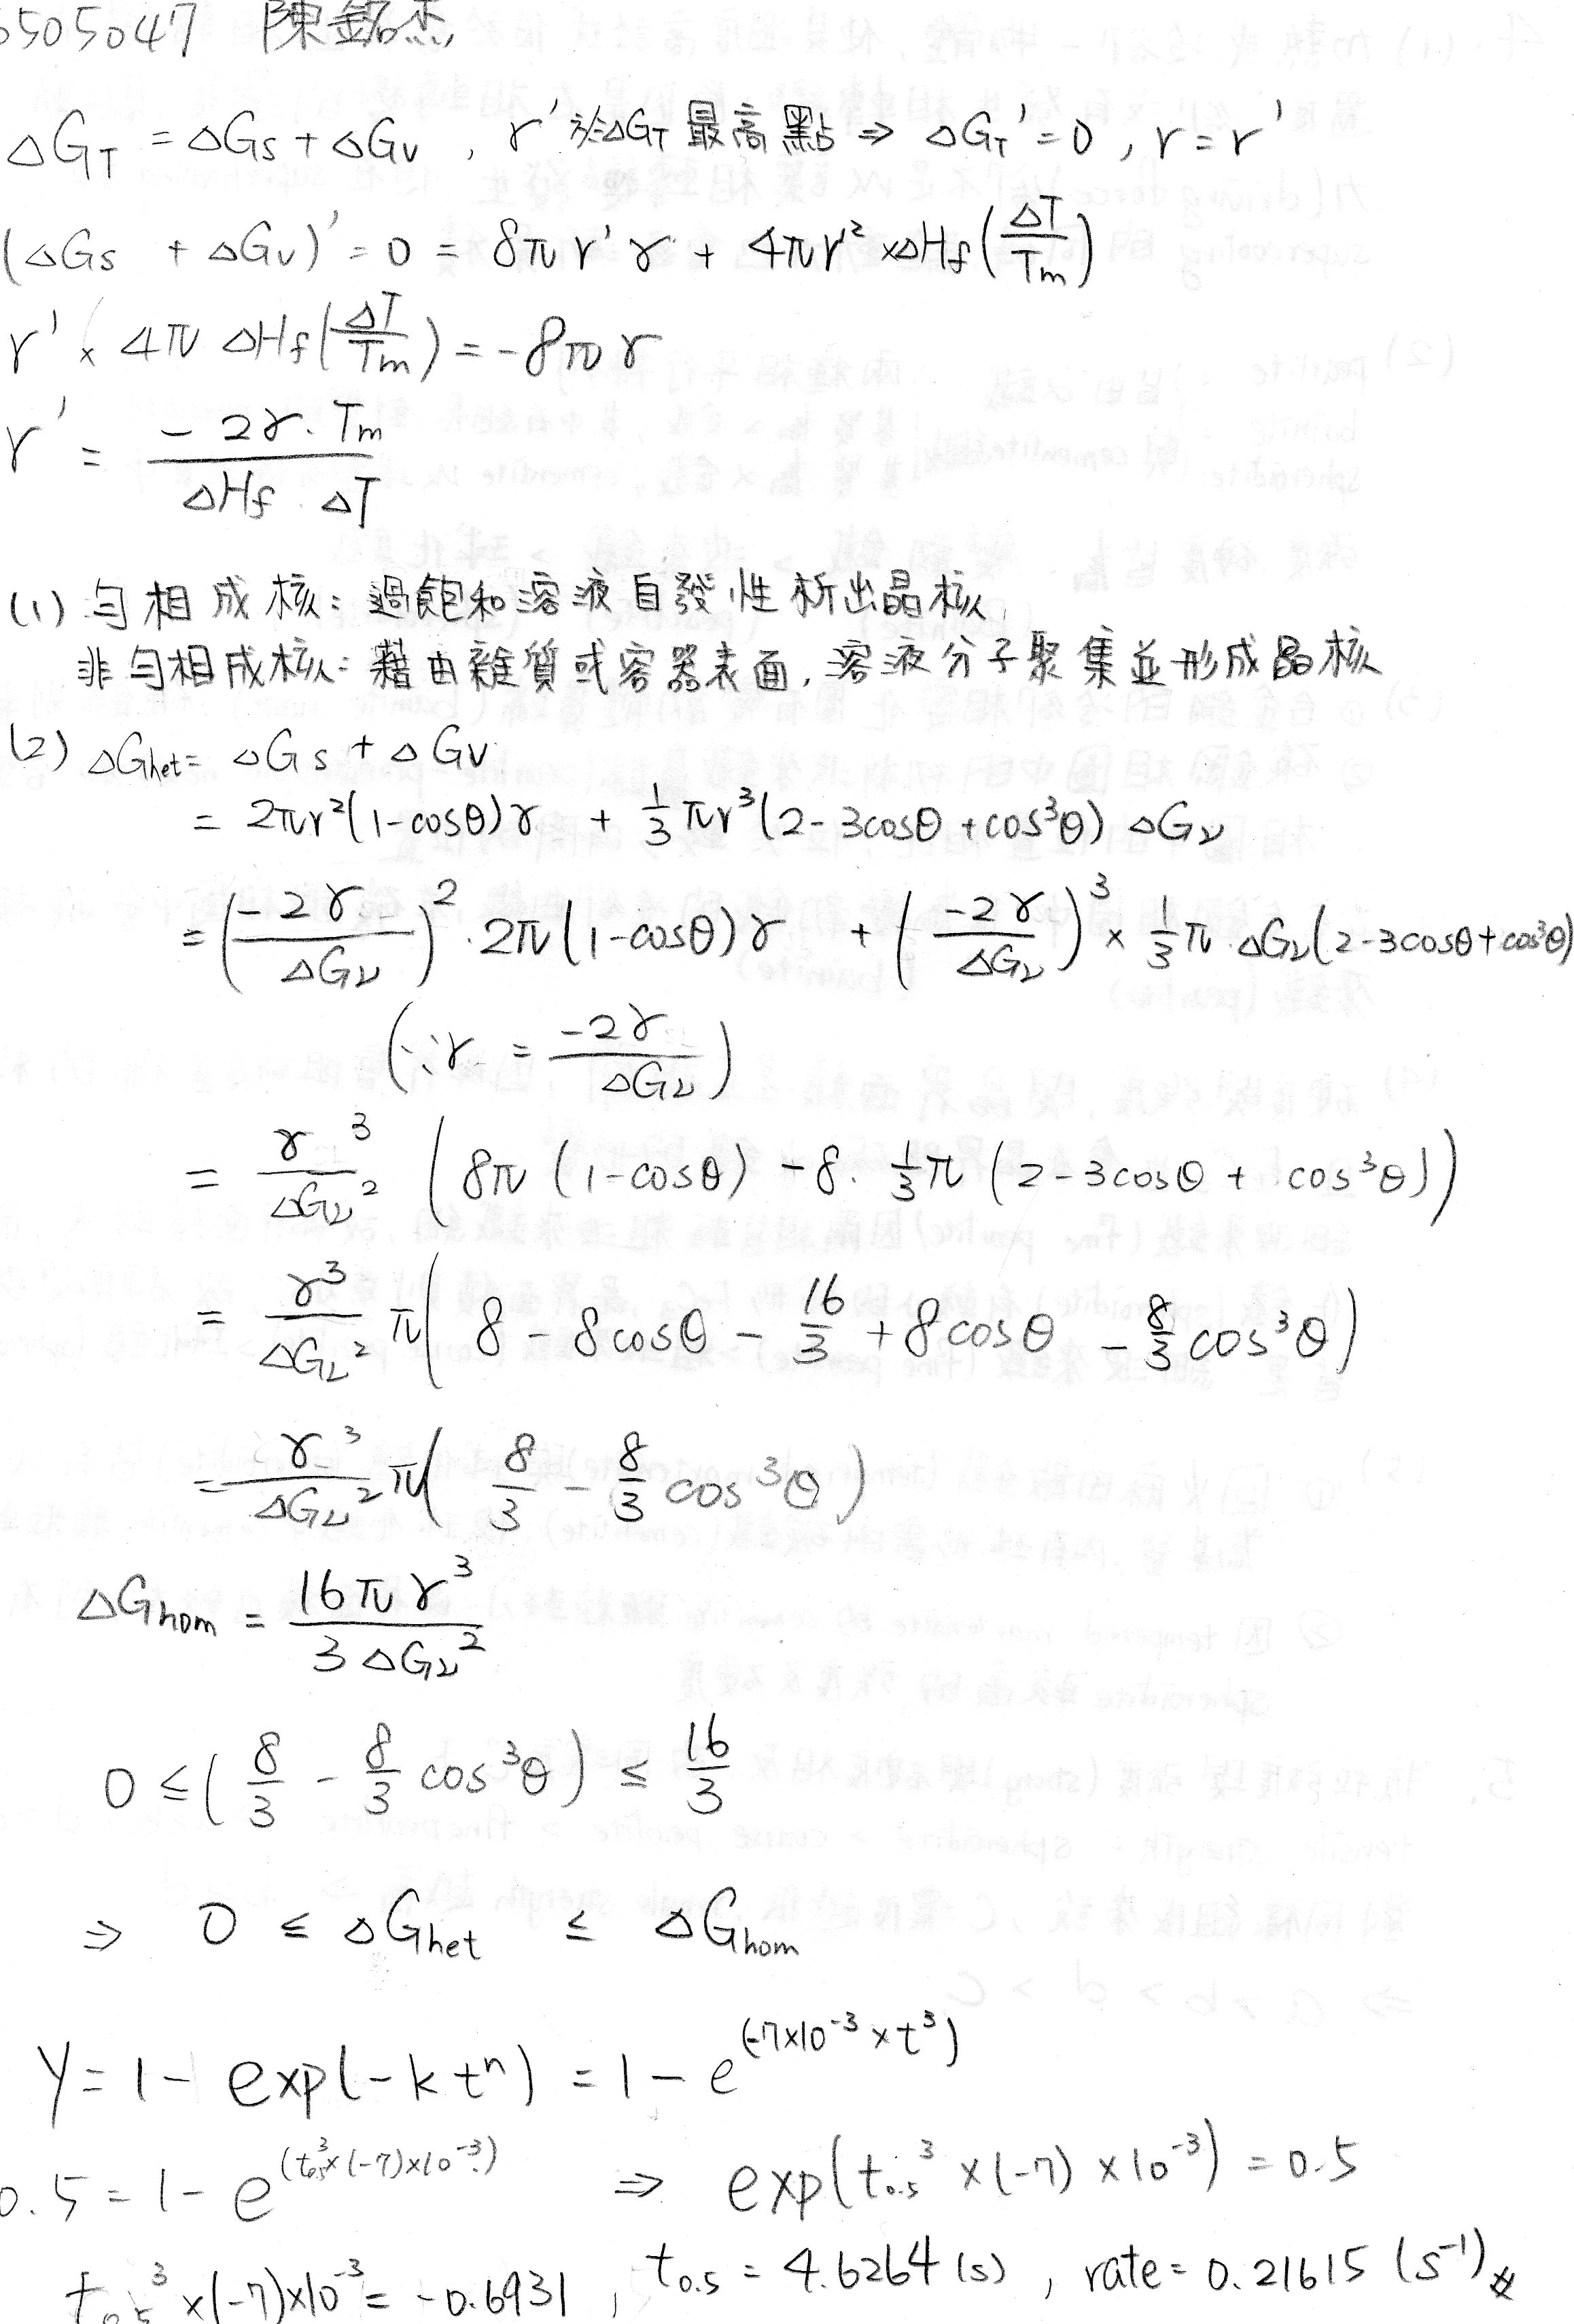 5505047 陳銘杰
ΔG_T = ΔGs + ΔGv , r' 於ΔG_T 最高點 ⇒ ΔG_T' = 0 , r = r'
(ΔGs + ΔGv)' = 0 = 8πr'γ + 4πr'² × ΔHf (ΔT/Tm)
r' × 4π ΔHf (ΔT/Tm) = -8πγ
r' = (-2γ · Tm)/(ΔHf · ΔT)
(1) 勻相成核: 過飽和溶液自發性析出晶核
非勻相成核: 藉由雜質或容器表面, 溶液分子聚集並形成晶核
(2) ΔGhet = ΔGs + ΔGv
= 2πr²(1-cosθ)γ + 1/3 πr³(2-3cosθ+cos³θ) ΔGv
= (-2γ/ΔGv)² · 2π(1-cosθ)γ + (-2γ/ΔGv)³ × 1/3 π · ΔGv(2-3cosθ+cos³θ)
(∵ r = -2γ/ΔGv)
= γ³/ΔGv² (8π (1-cosθ) - 8 · 1/3 π (2-3cosθ + cos³θ))
= γ³/ΔGv² π(8 - 8cosθ - 16/3 + 8cosθ - 8/3 cos³θ)
= γ³/ΔGv² π(8/3 - 8/3 cos³θ)
ΔGhom = 16πγ³/3ΔGv²
0 ≤ (8/3 - 8/3 cos³θ) ≤ 16/3
⇒ 0 ≤ ΔGhet ≤ ΔGhom
y = 1 - exp(-k tⁿ) = 1 - e^(-7×10⁻³ × t³)
0.5 = 1 - e^(t₀.₅³×(-7)×10⁻³) ⇒ exp(t₀.₅³ × (-7) × 10⁻³) = 0.5
t₀.₅³ × (-7)×10⁻³ = -0.6931 , t₀.₅ = 4.6264 (s) , rate = 0.21615 (s⁻¹) #